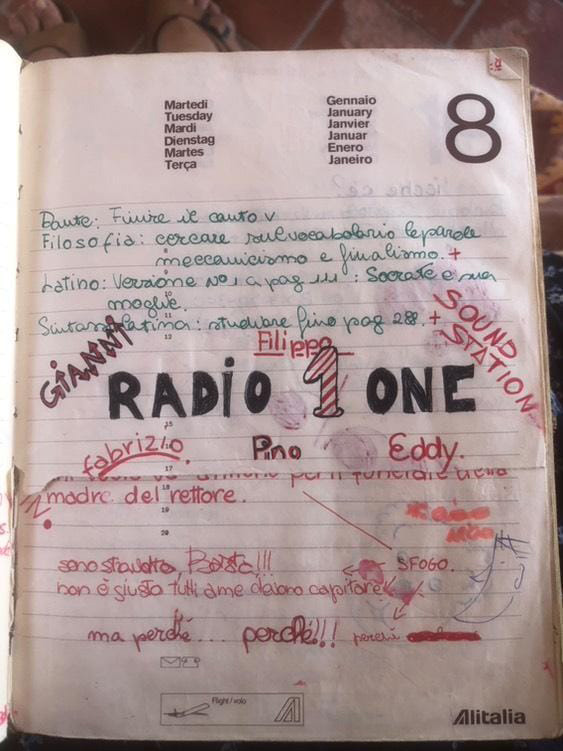 Martedì
Tuesday
Mardi
Dienstag
Martes
Terça
Gennaio
January
Janvier
Januar
Enero
Janeiro
8
Dante: Finire il canto V
Filosofia: cercare sul vocabolario le parole
meccanicismo e finalismo. +
Latino: Versione N° 1 a pag 111: Socrate e sua
moglie.
Sintassi latina: studiare fino pag 288. +
GIANNI
Filippo
SOUND
STATION
RADIO 1 ONE
fabrizio.
Pino
Eddy.
per il funerale della
madre del rettore.
SFOGO.
sono stufa Basta!!!
non è giusto tutti a me devono capitare
ma perché... perché!!! perché
10
11
12
15
17
18
19
20
Flight/volo
Alitalia